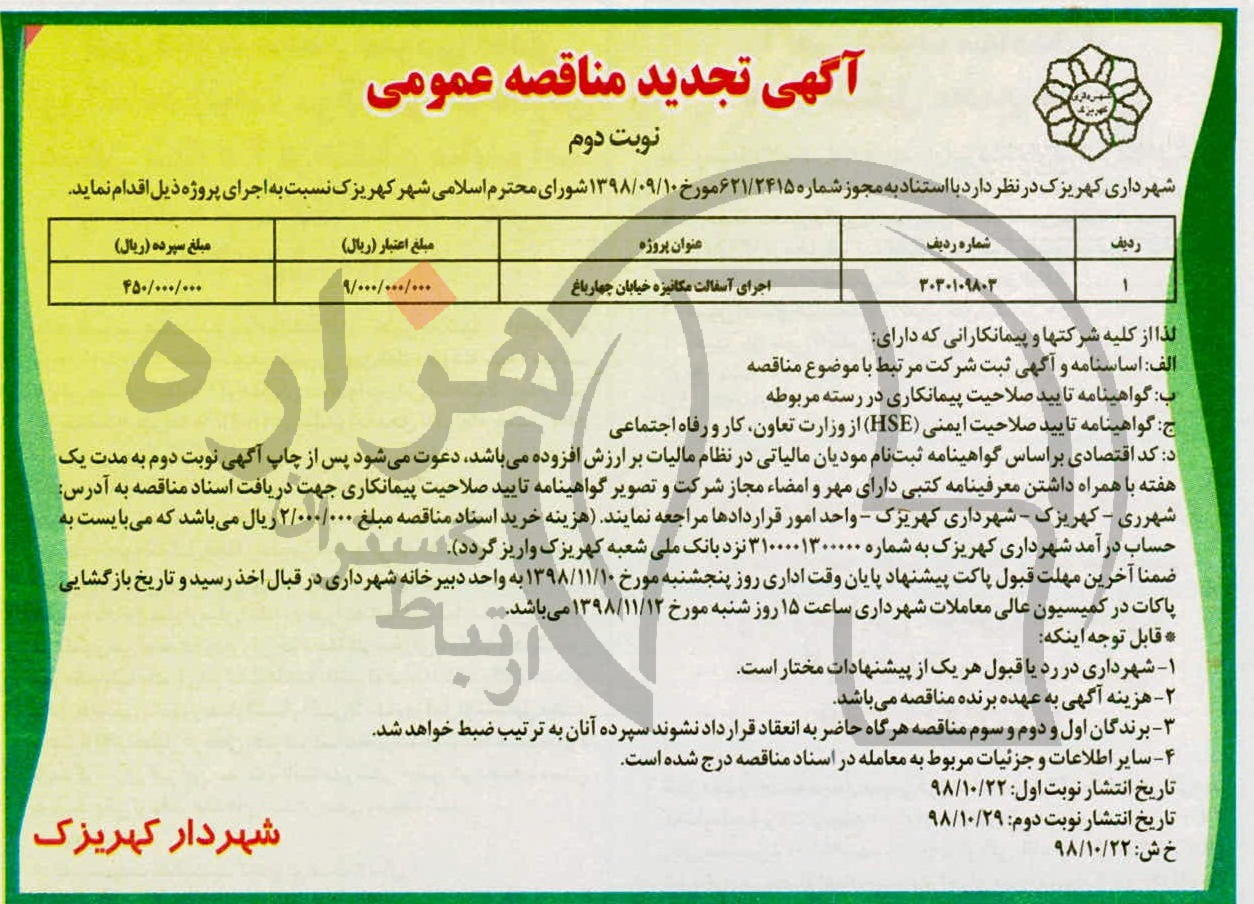 آگهی تجدید مناقصه عمومی
شهرداری
کهریزک
نوبت دوم
شهرداری کهریزک در نظر دارد با استناد به مجوز شماره ۶۲۱/۲۴۱۵ مورخ ۱۳۹۸/۰۹/۱۰ شورای محترم اسلامی شهر کهریزک نسبت به اجرای پروژه ذیل اقدام نماید.
ردیف شماره ردیف عنوان پروژه مبلغ اعتبار (ریال) مبلغ سپرده (ریال)
۱ ۳۰۳۰۱۰۹۸۰۳ اجرای آسفالت مکانیزه خیابان چهارباغ ۹/۰۰۰/۰۰۰/۰۰۰ ۴۵۰/۰۰۰/۰۰۰
لذا از کلیه شرکتها و پیمانکارانی که دارای:
الف: اساسنامه و آگهی ثبت شرکت مرتبط با موضوع مناقصه
ب: گواهینامه تایید صلاحیت پیمانکاری در رسته مربوطه
ج: گواهینامه تایید صلاحیت ایمنی (HSE) از وزارت تعاون، کار و رفاه اجتماعی
د: کد اقتصادی بر اساس گواهینامه ثبت‌نام مودیان مالیاتی در نظام مالیات بر ارزش افزوده می‌باشد، دعوت می‌شود پس از چاپ آگهی نوبت دوم به مدت یک
هفته با همراه داشتن معرفینامه کتبی دارای مهر و امضاء مجاز شرکت و تصویر گواهینامه تایید صلاحیت پیمانکاری جهت دریافت اسناد مناقصه به آدرس:
شهرری - کهریزک - شهرداری کهریزک - واحد امور قراردادها مراجعه نمایند. (هزینه خرید اسناد مناقصه مبلغ ۲/۰۰۰/۰۰۰ ریال می‌باشد که می‌بایست به
حساب درآمد شهرداری کهریزک به شماره ۳۱۰۰۰۰۱۳۰۰۰۰۰ نزد بانک ملی شعبه کهریزک واریز گردد).
ضمنا آخرین مهلت قبول پاکت پیشنهاد پایان وقت اداری روز پنجشنبه مورخ ۱۳۹۸/۱۱/۱۰ به واحد دبیرخانه شهرداری در قبال اخذ رسید و تاریخ بازگشایی
پاکات در کمیسیون عالی معاملات شهرداری ساعت ۱۵ روز شنبه مورخ ۱۳۹۸/۱۱/۱۲ می‌باشد.
* قابل توجه اینکه:
۱- شهرداری در رد یا قبول هر یک از پیشنهادات مختار است.
۲- هزینه آگهی به عهده برنده مناقصه می‌باشد.
۳- برندگان اول و دوم و سوم مناقصه هرگاه حاضر به انعقاد قرارداد نشوند سپرده آنان به ترتیب ضبط خواهد شد.
۴- سایر اطلاعات و جزئیات مربوط به معامله در اسناد مناقصه درج شده است.
تاریخ انتشار نوبت اول: ۹۸/۱۰/۲۲
تاریخ انتشار نوبت دوم: ۹۸/۱۰/۲۹
خ ش: ۹۸/۱۰/۲۲
شهردار کهریزک
هزاره
گسترش
ارتباط